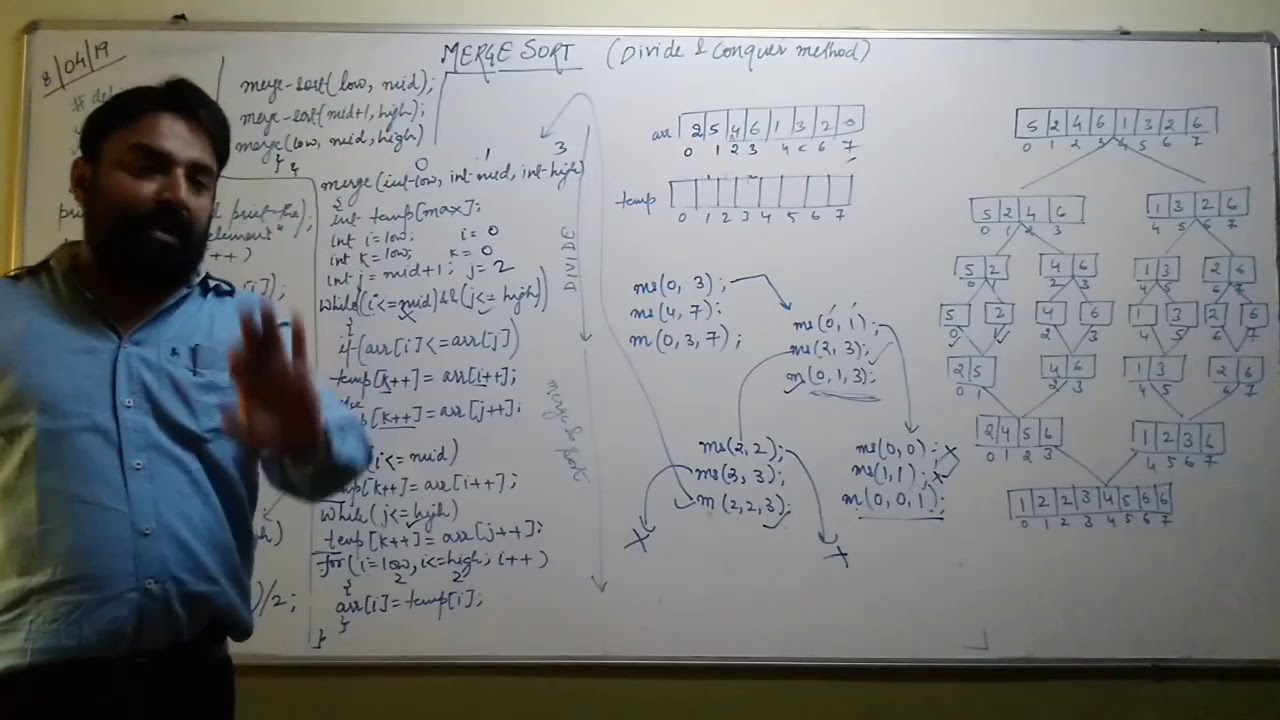 8/04/19
MERGE SORT (Divide & Conquer method)
merge-sort(low, mid);
merge-sort(mid+1, high);
merge(low, mid, high)
}
0 1 3
merge(int-low, int-mid, int-high)
{
int temp[max];
int i=low; i=0
int k=low; k=0
int j=mid+1; j=2
while(i<=mid)&&(j<=high))
{
if(arr[i]<=arr[j])
temp[k++]=arr[i++];
k++]=arr[j++];
(i<=mid)
k++]=arr[i++];
while(j<=high)
temp[k++]=arr[j++];
for(i=low, i<=high; i++)
2 2
{
arr[i]=temp[i];
}
}
print-the);
element"
++)
[i];
)/2;
DIVIDE
merge & sort
arr 2 5 4 6 1 3 2 0
0 1 2 3 4 5 6 7
temp
0 1 2 3 4 5 6 7
ms(0, 3);
ms(4, 7):
m(0, 3, 7);
ms(0, 1);
ms(2, 3);
m(0, 1, 3);
ms(2, 2);
ms(3, 3);
m(2, 2, 3);
ms(0, 0);
ms(1, 1);
m(0, 0, 1);
5 2 4 6 1 3 2 6
0 1 2 3 4 5 6 7
5 2 4 6 1 3 2 6
0 1 2 3 4 5 6 7
5 2 4 6 1 3 2 6
0 1 2 3 4 5 6 7
5 2 4 6 1 3 2 6
0 1 2 3 4 5 6 7
2 5 4 6 1 3 2 6
0 1 2 3 4 5 6 7
2 4 5 6 1 2 3 6
0 1 2 3 4 5 6 7
1 2 2 3 4 5 6 6
0 1 2 3 4 5 6 7